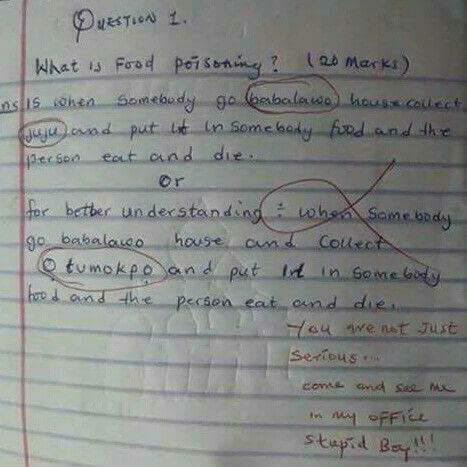 QUESTION 1.
What is Food poisoning? (20 Marks)
ns is when somebody go babalawo house collect
juju and put it in somebody food and the
person eat and die.
Or
for better understanding ÷ when somebody
go babalawo house and collect
O tumokpo and put it in somebody
food and the person eat and die.
You are not just
serious...
come and see me
in my office
stupid Boy!!!